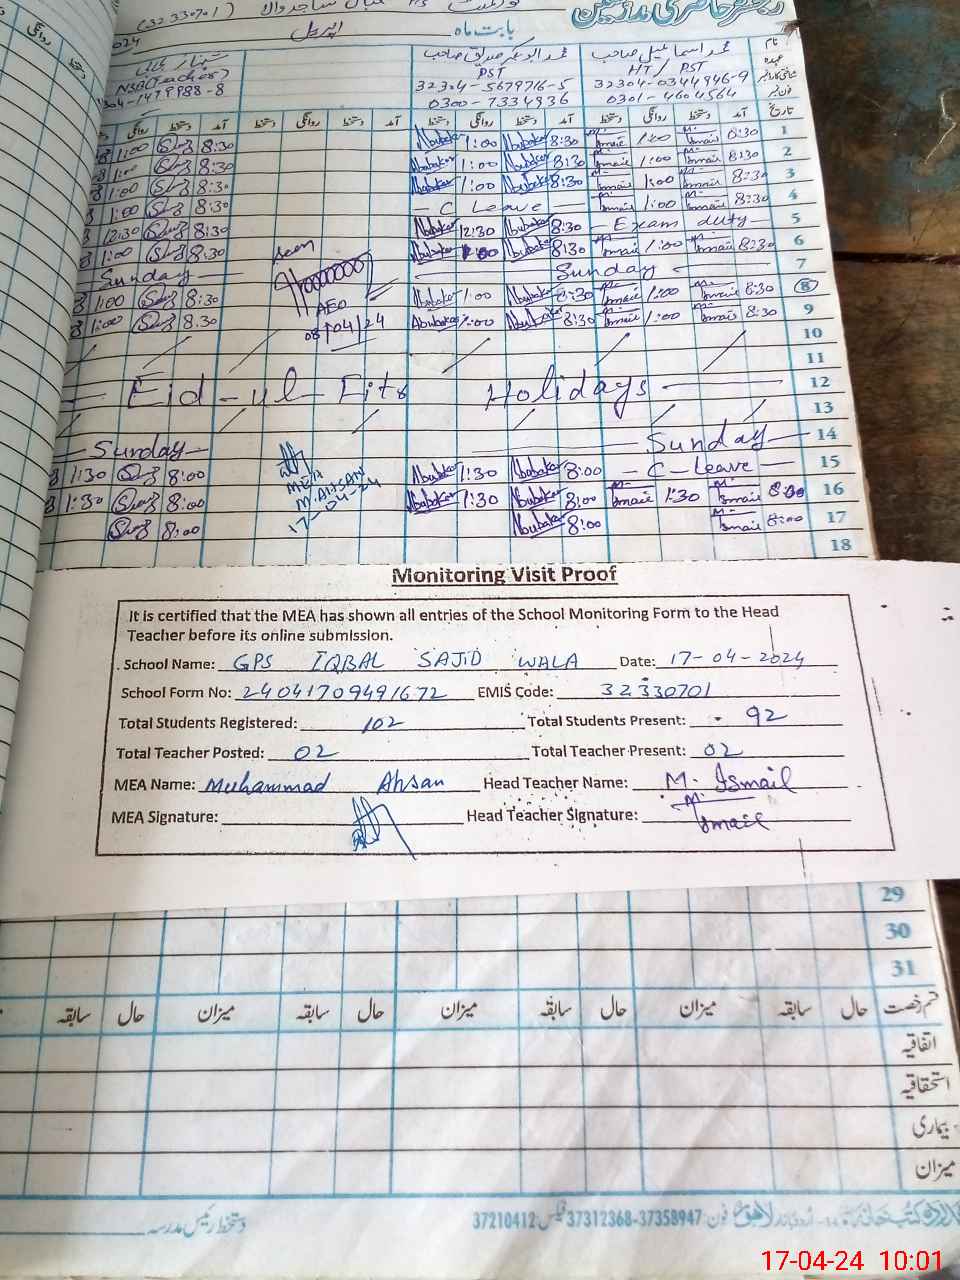 رجسٹر حاضری مدرسین
(32330701)
بابت ماہ اپریل
024
نام
محمد اسماعیل صاحب
محمد ابوبکر صدیق صاحب
عہدہ
HT/PST
PST
NSB(Teacher)
32304-0344946-9
32304-5679716-5
304-1479988-8
فون نمبر
0301-4604564
0300-7334936
تاریخ آمد دستخط روانگی دستخط آمد دستخط روانگی دستخط آمد دستخط روانگی دستخط آمد دستخط روانگی
1:00 8:30 Abubakar 1:00 Abubakar 8:30 M. Ismail 1:00 M. Ismail 8:30 1
1:00 8:30 Abubakar 1:00 Abubakar 8:30 M. Ismail 1:00 M. Ismail 8:30 2
1:00 8:30 Abubakar 1:00 Abubakar 8:30 M. Ismail 1:00 M. Ismail 8:30 3
1:00 8:30 C Leave M. Ismail 1:00 M. Ismail 8:30 4
12:30 8:30 Abubakar 12:30 Abubakar 8:30 - Exam duty - 5
1:00 8:30 Abubakar 1:00 Abubakar 8:30 M. Ismail 1:00 M. Ismail 8:30 6
Sunday Sunday 7
1:00 8:30 Abubakar 1:00 Abubakar 8:30 M. Ismail 1:00 M. Ismail 8:30 8
1:00 8:30 Abubakar 1:00 Abubakar 8:30 M. Ismail 1:00 M. Ismail 8:30 9
seen
AEO
08/04/24
10
11
Eid-ul-Fitr Holidays 12
13
Sunday Sunday 14
1:30 8:00 Abubakar 1:30 Abubakar 8:00 - C-Leave - 15
1:30 8:00 Abubakar 1:30 Abubakar 8:00 M. Ismail 1:30 M. Ismail 8:00 16
8:00 Abubakar 8:00 M. Ismail 8:00 17
MEA
M.AHSAN
17-04-24
18
Monitoring Visit Proof
It is certified that the MEA has shown all entries of the School Monitoring Form to the Head
Teacher before its online submission.
School Name: GPS IQBAL SAJID WALA Date: 17-04-2024
School Form No: 24041709491672 EMIS Code: 32330701
Total Students Registered: 102 Total Students Present: 92
Total Teacher Posted: 02 Total Teacher Present: 02
MEA Name: Muhammad Ahsan Head Teacher Name: M. Ismail
MEA Signature: Head Teacher Signature: M. Ismail
29
30
31
قسم رخصت حال سابقہ میزان حال سابقہ میزان حال سابقہ میزان حال سابقہ
اتفاقیہ
استحقاقیہ
بیماری
میزان
دستخط رئیس مدرسہ
لاہور فون: 37358947-37312368 فیکس: 37210412
17-04-24 10:01